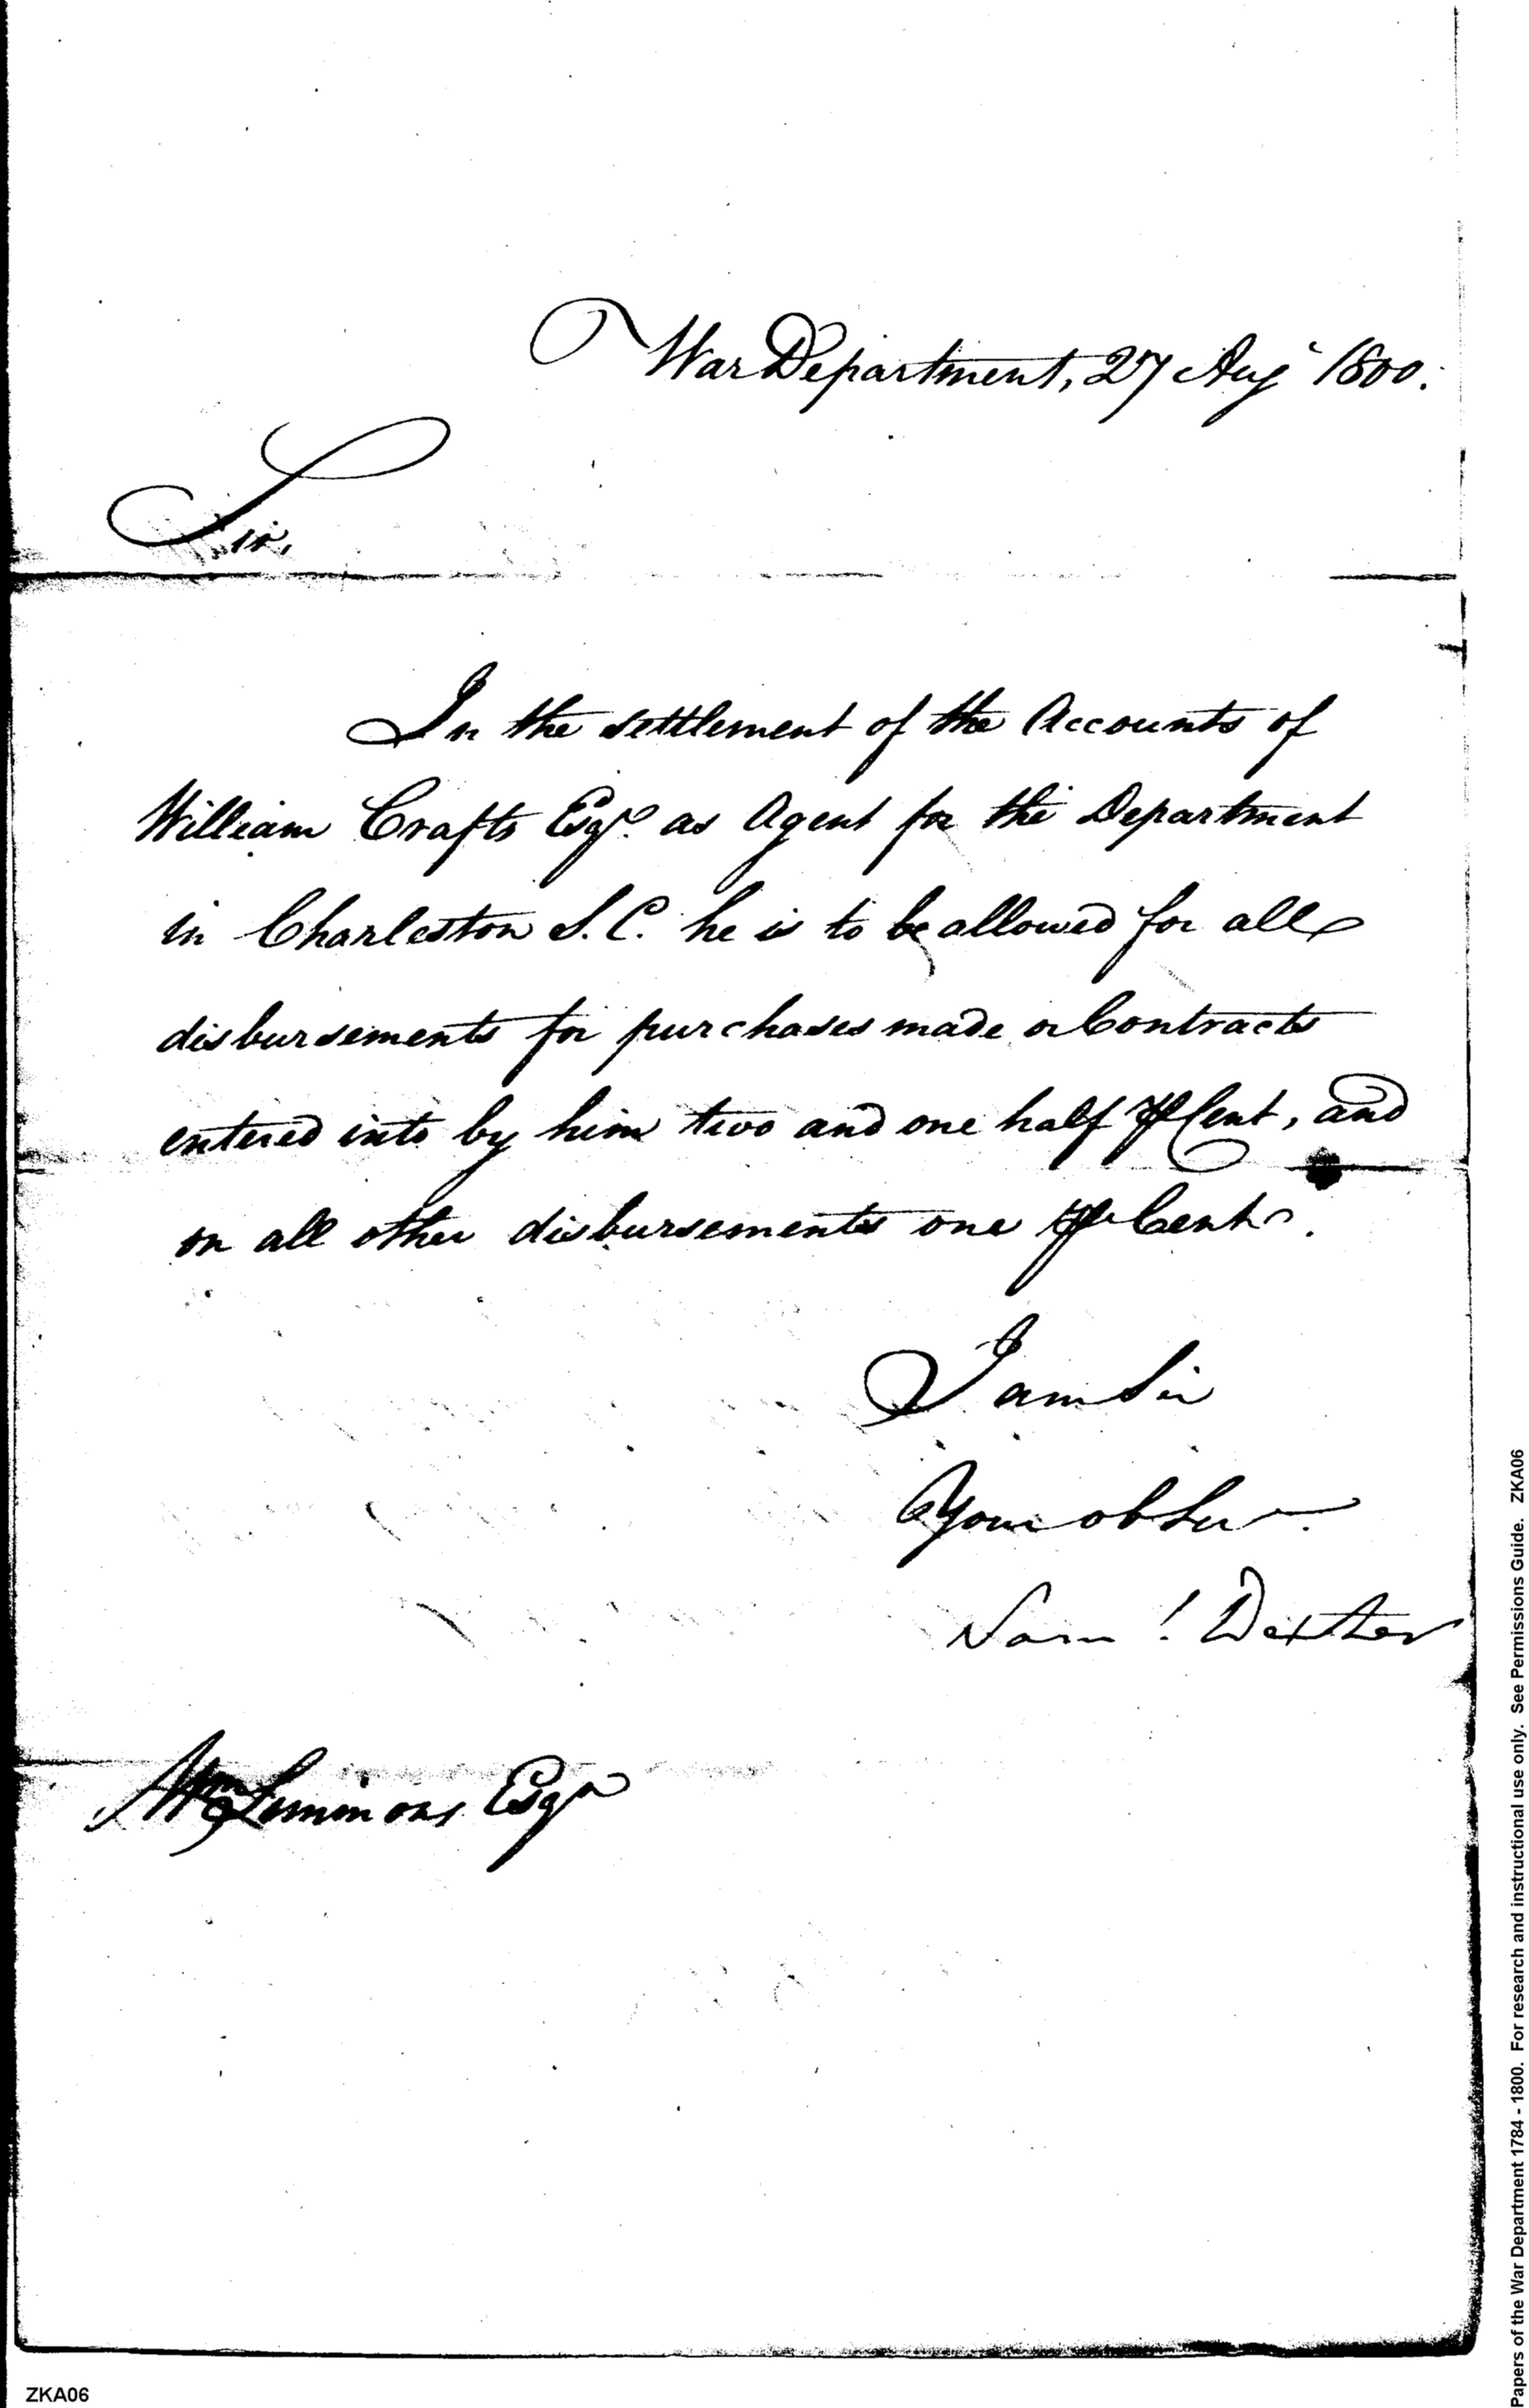 War Department, 27 Aug 1800.
Sir,
In the settlement of the Accounts of
William Crafts Esqr. as Agent for the Department
in Charleston S.C. he is to be allowed for all
disbursements for purchases made or Contracts
entered into by him two and one half ⅌ Cent, and
on all other disbursements one ⅌ Cent.
I am Sir
Your ob Ser
Saml Dexter
Wm Simmons Esqr
ZKA06
Papers of the War Department 1784 - 1800. For research and instructional use only. See Permissions Guide. ZKA06